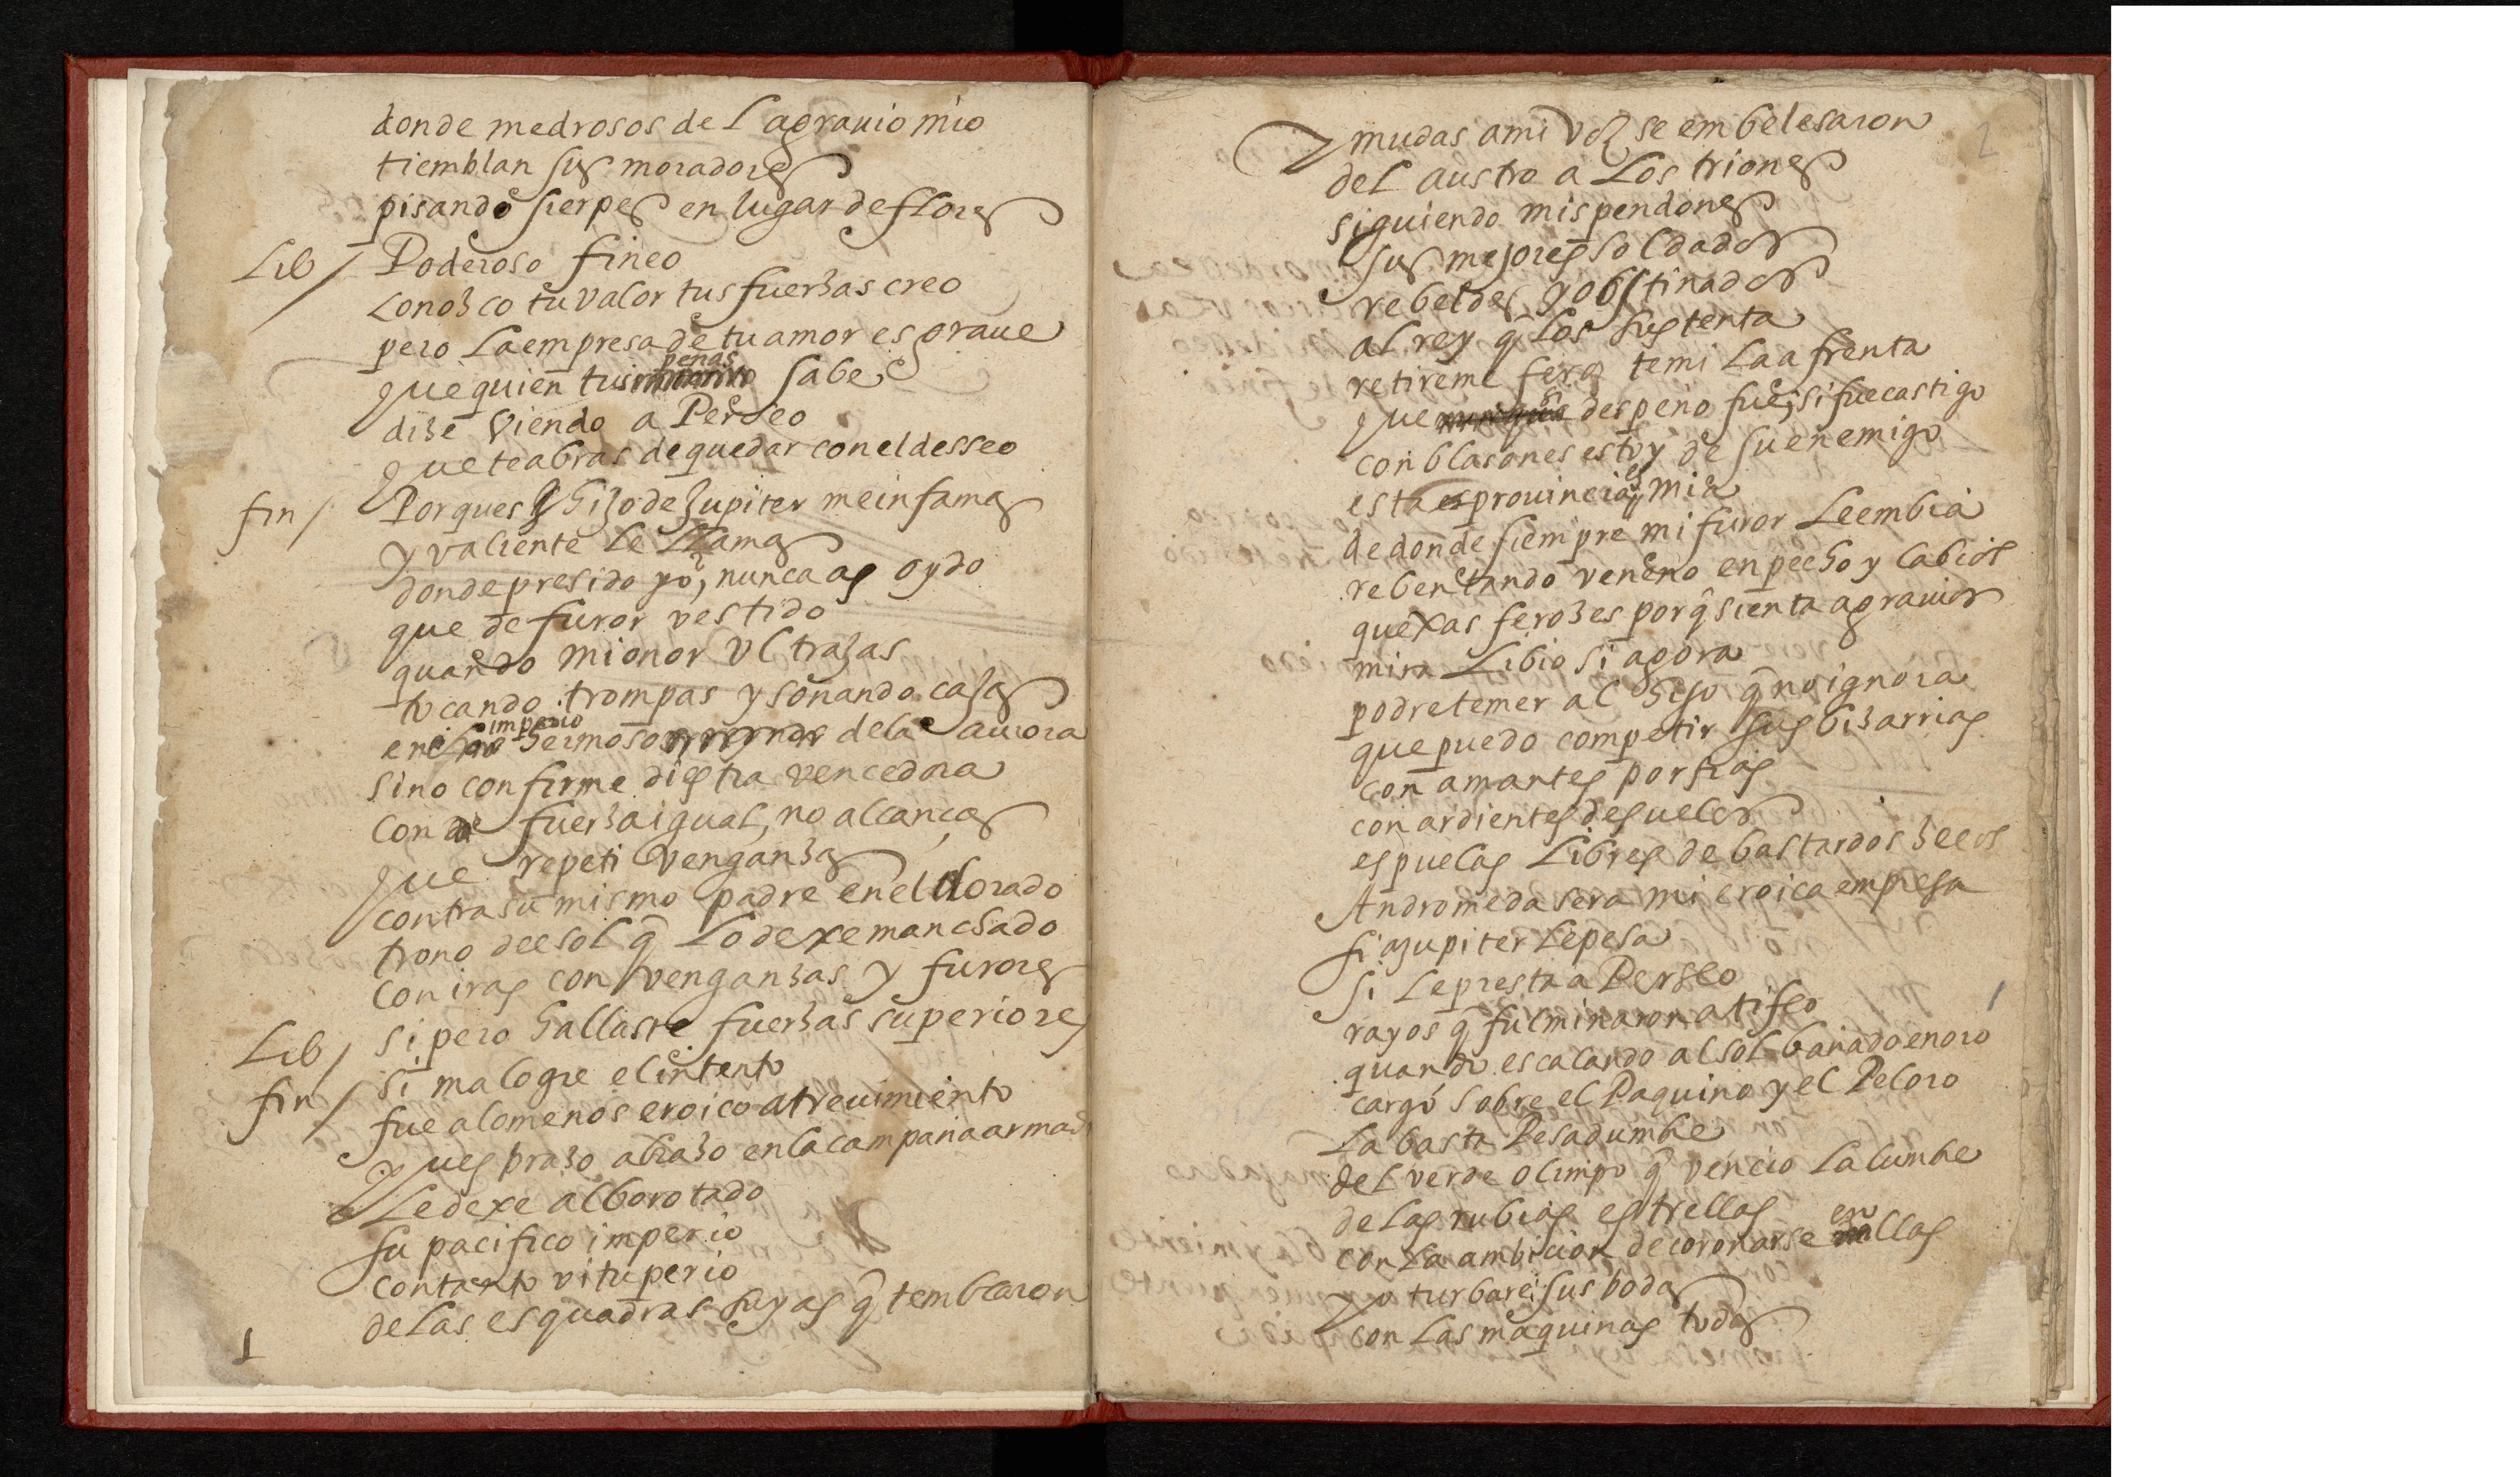 donde medrosos del agrauio mio
tiemblan sus moradores
pisando sierpes en lugar de flores
Lib/ Poderoso fineo
Conozco tu valor tus fuerzas creo
pero la empresa de tu amor es graue
penas
que quien tus sabe
dize viendo a Perseo
que te abras de quedar con el desseo
fin/ Porques hijo de Jupiter me infamas
y valiente le llamas
donde presido yo, nunca as oydo
que de furor vestido
quando mi onor vltrazas
tocando trompas y sonando cajas
imperio
en el hermoso de la aurora
sino con firme diestra vencedora
con fuerza igual, no alcanças
que repeti venganzas
contra su mismo padre en el dorado
trono del sol q̃ lo dexe manchado
con iras con venganzas y furores
Lib/ si pero hallaste fuerzas superiores
fin/ si malogre el intento
fue alomenos eroico atreuimiento
pues brazo abrazo en la campana armad
le dexe alborotado
su pacifico imperio
con tanto vituperio
de las esquadras suyas q̃ temblaron
1
2
mudas a mi voz se embelesaron
del austro a los triones
siguiendo mis pendones
sus mejores soldados
rebeldes y obstinados
al rey q̃ los sustenta
retireme feroz temi la afrenta
si
que despeño fue, si fue castigo
con blasones estoy de su enemigo
es
esta prouincia mia
de donde siempre mi furor le embia
rebentando veneno en pecho y labios
quexas ferozes porq̃ sienta agrauios
mira Libio si agora
podre temer al hijo q̃ no ignora
que puedo competir sus bizarrias
con amantes porfias
con ardientes desuelos
espuelas libres de bastardos zelos
Andromeda sera mi eroica empresa
si a Jupiter le pesa
si le presta a Perseo
rayos q̃ fulminaron a tifeo
quando escalando al sol bañado en oro
cargó sobre el Paquino y el Peloro
la basta Pesadumbre
del verde olimpo q̃ vencio la lumbre
de las rubias estrellas
en
con la ambicion de coronarse ellas
yo turbare sus bodas
con las maquinas todas